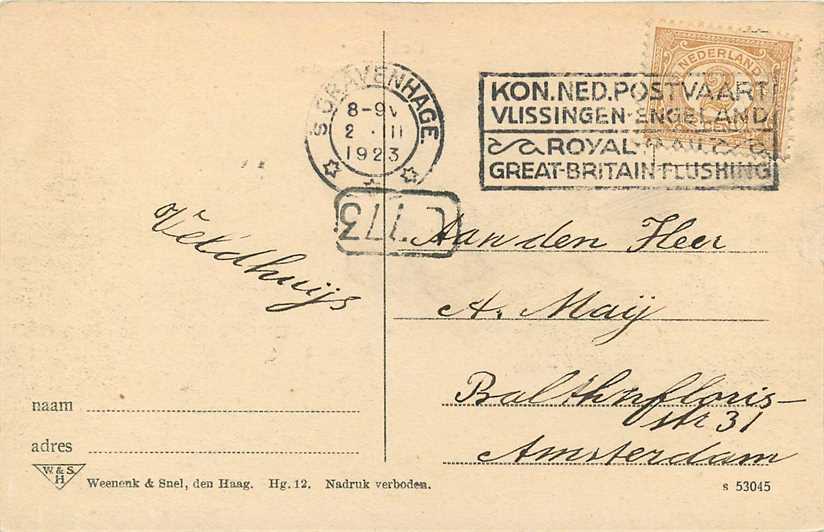 'S GRAVENHAGE.
8-9V
2 .III
1923
NEDERLAND
KON.NED.POSTVAART
VLISSINGEN-ENGELAND
ROYAL MAIL
GREAT-BRITAIN-FLUSHING
Veldhuijs
Aan den Heer
A. Maij
Balth: floris-
str 31
Amsterdam
naam
adres
W. & S.
H
Weenenk & Snel, den Haag. Hg. 12. Nadruk verboden.
s 53045